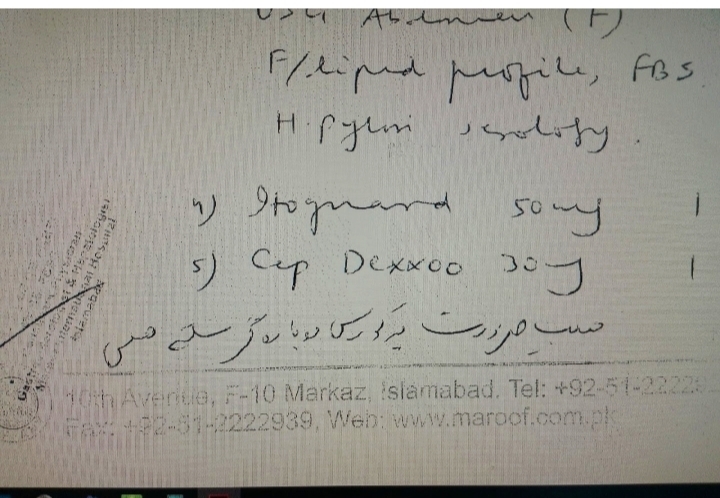 USG Abdomen (F)
F/lipid profile, FBS
H. pylori serology.
4) Itoguard 50mg 1
5) Cap Dexxoo 30mg 1
حسب ضرورت یہ کورس دوبارہ کر سکتے ہیں
Hepatologist
International Hospital
Islamabad
10th Avenue, F-10 Markaz, Islamabad. Tel: +92-51-2222
Fax: +92-51-2222939, Web: www.maroof.com.pk